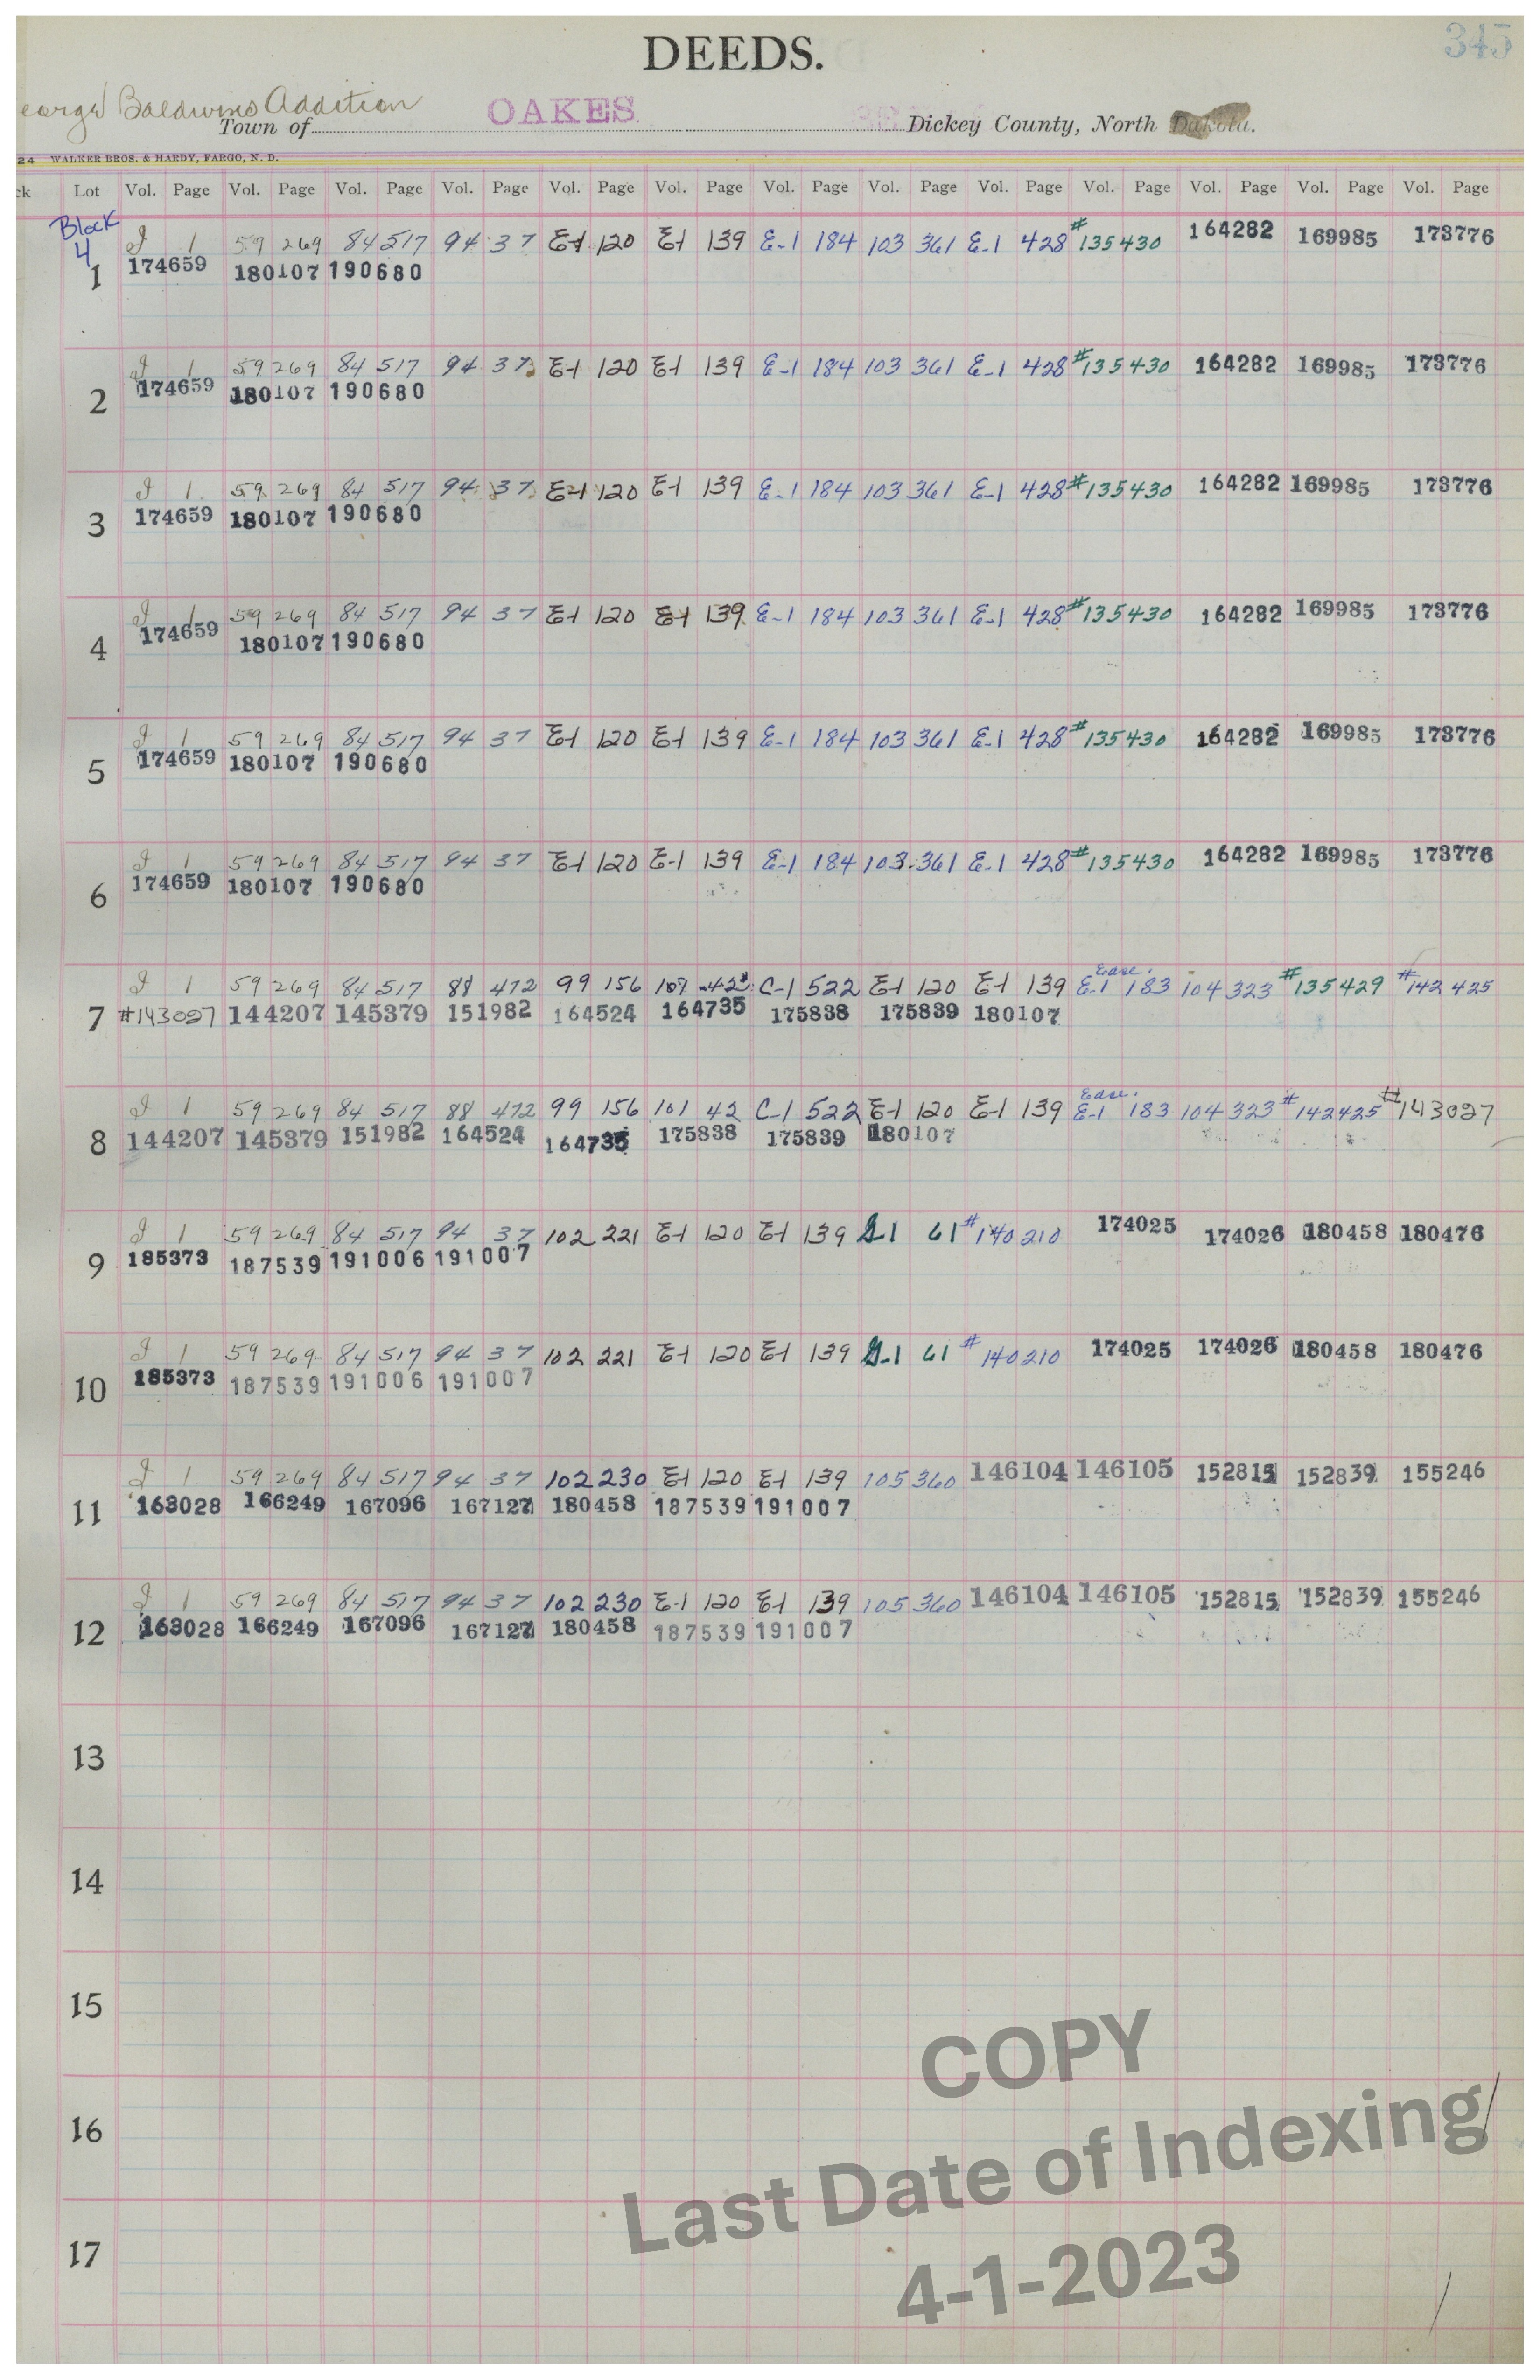 345
DEEDS.
eorge Baldwins Addition
Town of OAKES Dickey County, North Dakota.
24 WALKER BROS. & HARDY, FARGO, N. D.
ck Lot Vol. Page Vol. Page Vol. Page Vol. Page Vol. Page Vol. Page Vol. Page Vol. Page Vol. Page Vol. Page Vol. Page Vol. Page Vol. Page
Block 4
1 I 1 59 269 84 517 94 37 E-1 120 E-1 139 E-1 184 103 361 E-1 428 #135430 164282 169985 173776
174659 180107 190680
2 I 1 59 269 84 517 94 37 E-1 120 E-1 139 E-1 184 103 361 E-1 428 #135430 164282 169985 173776
174659 180107 190680
3 I 1 59 269 84 517 94 37 E-1 120 E-1 139 E-1 184 103 361 E-1 428 #135430 164282 169985 173776
174659 180107 190680
4 I 1 59 269 84 517 94 37 E-1 120 E-1 139 E-1 184 103 361 E-1 428 #135430 164282 169985 173776
174659 180107 190680
5 I 1 59 269 84 517 94 37 E-1 120 E-1 139 E-1 184 103 361 E-1 428 #135430 164282 169985 173776
174659 180107 190680
6 I 1 59 269 84 517 94 37 E-1 120 E-1 139 E-1 184 103 361 E-1 428 #135430 164282 169985 173776
174659 180107 190680
7 I 1 59 269 84 517 88 472 99 156 101 42 C-1 522 E-1 120 E-1 139 Ease. E-1 183 104 323 #135429 #142425
#143027 144207 145379 151982 164524 164735 175838 175839 180107
8 I 1 59 269 84 517 88 472 99 156 101 42 C-1 522 E-1 120 E-1 139 Ease. E-1 183 104 323 #142425 #143027
144207 145379 151982 164524 164735 175838 175839 180107
9 I 1 59 269 84 517 94 37 102 221 E-1 120 E-1 139 G-1 61 #140210 174025 174026 180458 180476
185373 187539 191006 191007
10 I 1 59 269 84 517 94 37 102 221 E-1 120 E-1 139 G-1 61 #140210 174025 174026 180458 180476
185373 187539 191006 191007
11 I 1 59 269 84 517 94 37 102 230 E-1 120 E-1 139 105 360 146104 146105 152815 152839 155246
163028 166249 167096 167127 180458 187539 191007
12 I 1 59 269 84 517 94 37 102 230 E-1 120 E-1 139 105 360 146104 146105 152815 152839 155246
163028 166249 167096 167127 180458 187539 191007
13
14
15
16
17
COPY
Last Date of Indexing
4-1-2023